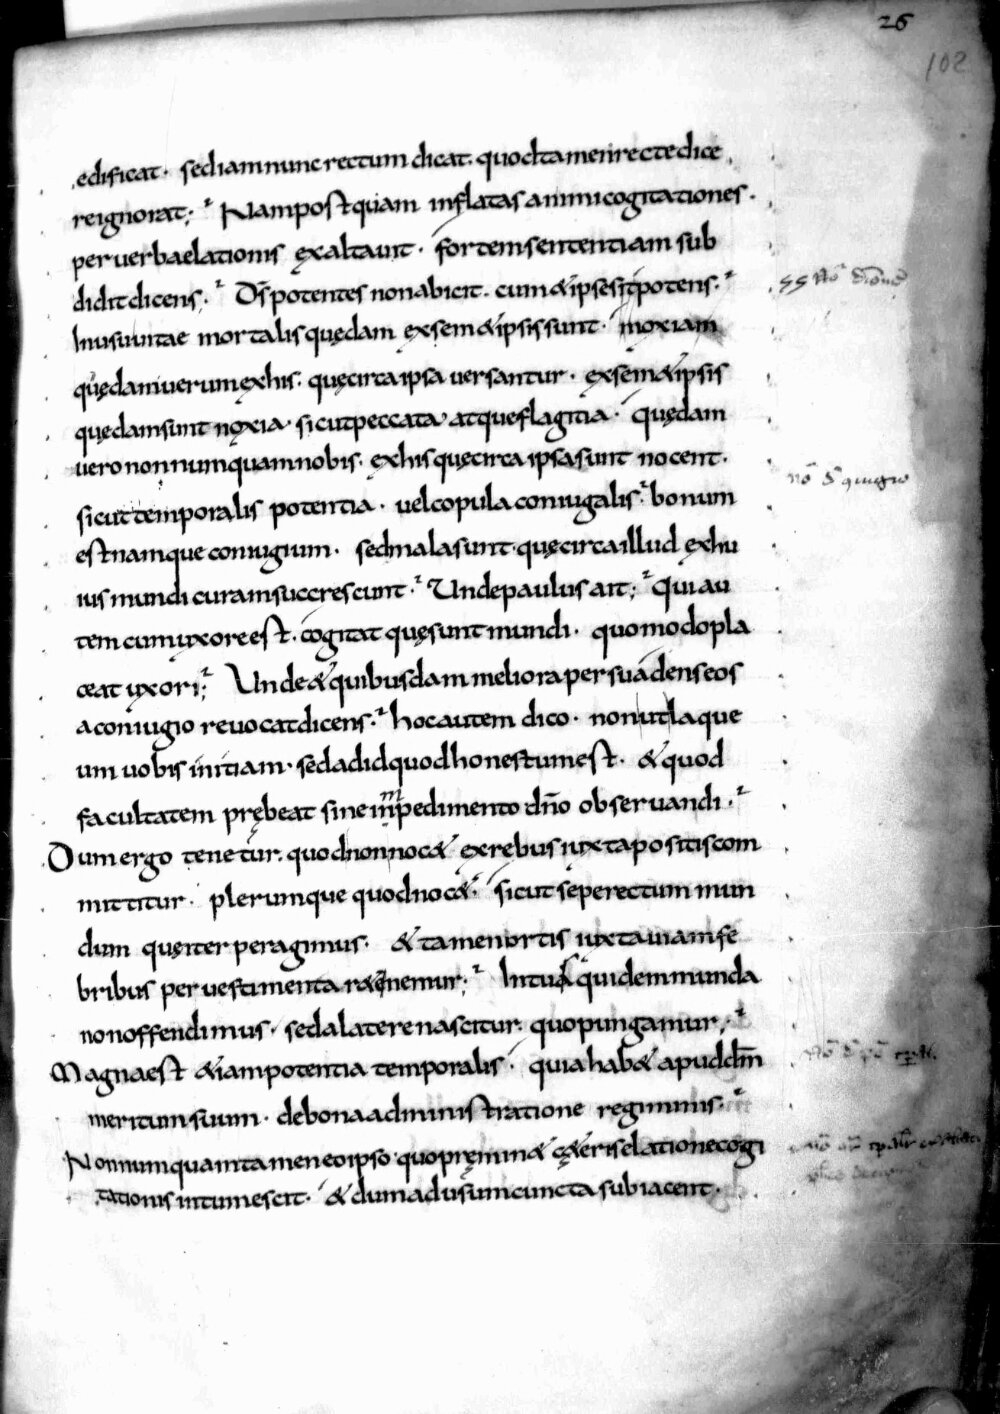 26
102
edificat. sed iam nunc rectum dicat. quod tamen recte dice
re ignorat; Nam postquam inflatas animi cogitationes.
per verba elationis exaltavit. fortem sententiam sub
didit dicens. Ds̄ potentes non abicit. cum & ipse sit potens.
huius vitae mortalis quędam ex sem& ipsis sunt noxia
quędam verum ex his. quę circa ipsa versantur. ex sem& ipsis
quędam sunt noxia. sicut peccata atque flagitia. quędam
vero nonnumquam nobis. ex his quę circa ipsa sunt nocent.
sicut temporalis potentia. vel copula coniugalis. bonum
est namque coniugium. sed mala sunt. quę circa illud ex hu
ius mundi cura m succrescunt. Unde paulus ait; Qui au
tem cum uxore est. cogitat quę sunt mundi. quomodo pla
ceat uxori; Unde & quibusdam meliora persuadens eos
a coniugio revocat dicens. hoc autem dico. non ut laque
um vobis initiam. sed ad id quod honestum est. & quod
facultatem prębeat sine impedimento dn̄o observandi.
Dum ergo tenetur. quod non noc& ex rębus iuxta positis com
mittitur. plerumque quod noc&. sicut sępe rectum mun
dum quę iter peragimus. & tamen ortis iuxta viam se
bribus per vestimenta ra&inemur; In tua quidem munda
non offendimus. sed a latere nascitur. quo pungamur;
Magna est &iam potentia temporalis. quia hab& apud dm̄
meritum suum. de bona administratione regiminis.
Nonnumquam tamen eo ipso. quo pręmin& cę&eris elatione cogi
tationis intumescit. & dum ad usum cuncta subiacent.